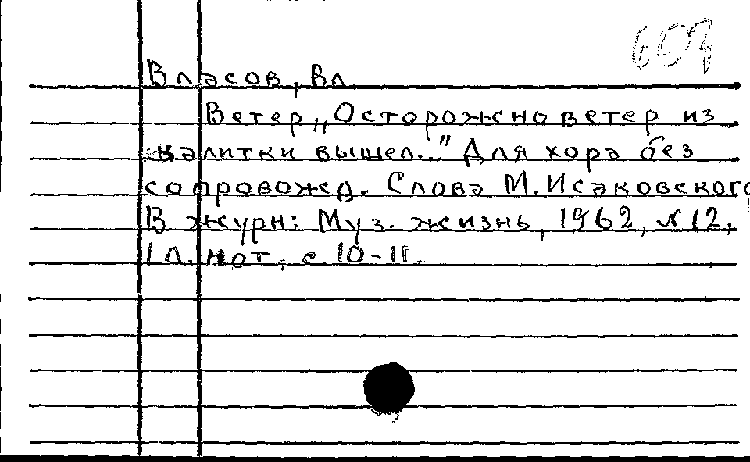 Власов, Вл.
Ветер „Осторожно ветер из
калитки вышел..." Для хора без
сопровожд. Слова М.Исаковского
В журн: Муз. жизнь, 1962, №12,
1 л. нот, с 10-11.